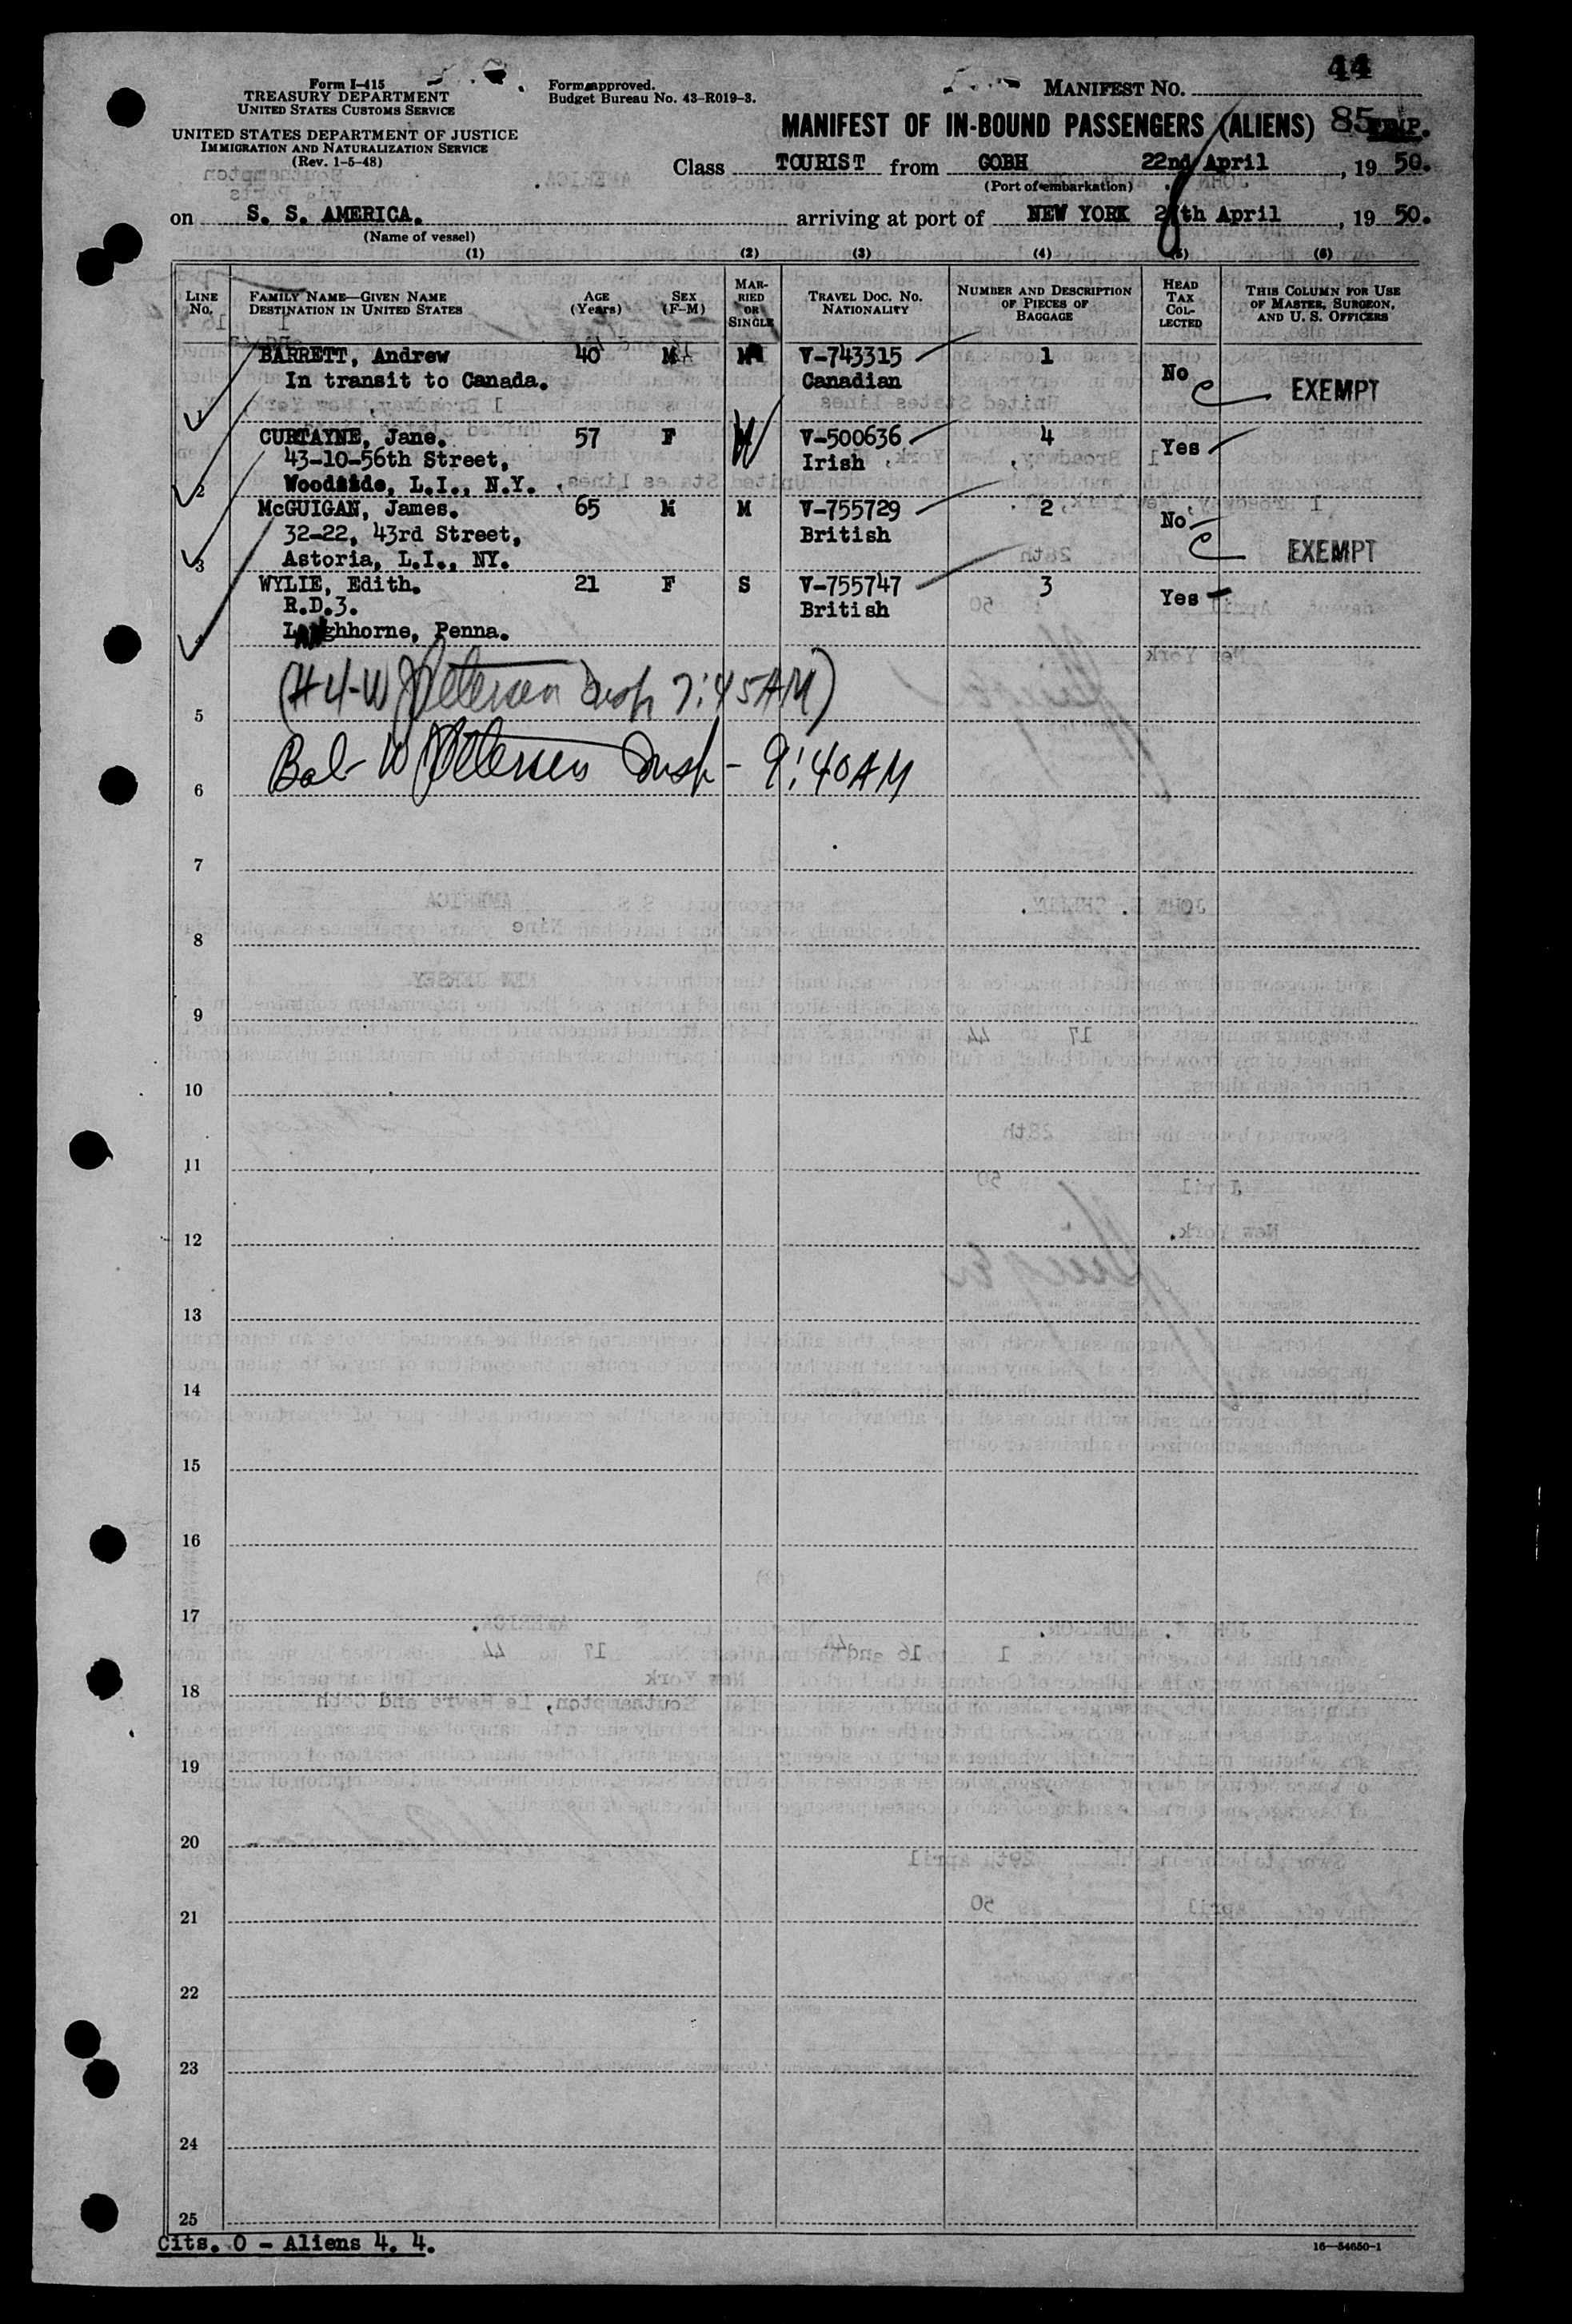 44
Form I-415
TREASURY DEPARTMENT
UNITED STATES CUSTOMS SERVICE
UNITED STATES DEPARTMENT OF JUSTICE
IMMIGRATION AND NATURALIZATION SERVICE
(Rev. 1-5-48)
Form approved.
Budget Bureau No. 43-R019-3.
MANIFEST NO.
MANIFEST OF IN-BOUND PASSENGERS (ALIENS) 85
Class TOURIST from COBH 22nd April, 19 50.
(Port of embarkation)
on S. S. AMERICA. arriving at port of NEW YORK 28th April, 19 50.
(Name of vessel)
(1) (2) (3) (4) (5) (6)
LINE NO. FAMILY NAME—GIVEN NAME DESTINATION IN UNITED STATES AGE (Years) SEX (F-M) MARRIED OR SINGLE TRAVEL DOC. NO. NATIONALITY NUMBER AND DESCRIPTION OF PIECES OF BAGGAGE HEAD TAX COLLECTED THIS COLUMN FOR USE OF MASTER, SURGEON, AND U. S. OFFICERS
BARRETT, Andrew 40 M M V-743315 1 No EXEMPT
In transit to Canada. Canadian
1
CURTAYNE, Jane. 57 F W V-500636 4 Yes
43-10-56th Street, Irish
2 Woodside, L.I., N.Y.
McGUIGAN, James. 65 M M V-755729 2 No EXEMPT
32-22, 43rd Street, British
3 Astoria, L.I., NY.
WYLIE, Edith. 21 F S V-755747 3 Yes
R.D.3. British
4 Langhhorne, Penna.
(#4-W Petersen Insp 7:45AM)
5
Bal- W Petersen Insp - 9:40AM
6
7
8
9
10
11
12
13
14
15
16
17
18
19
20
21
22
23
24
25
Cits. 0 - Aliens 4. 4.
16—54650-1